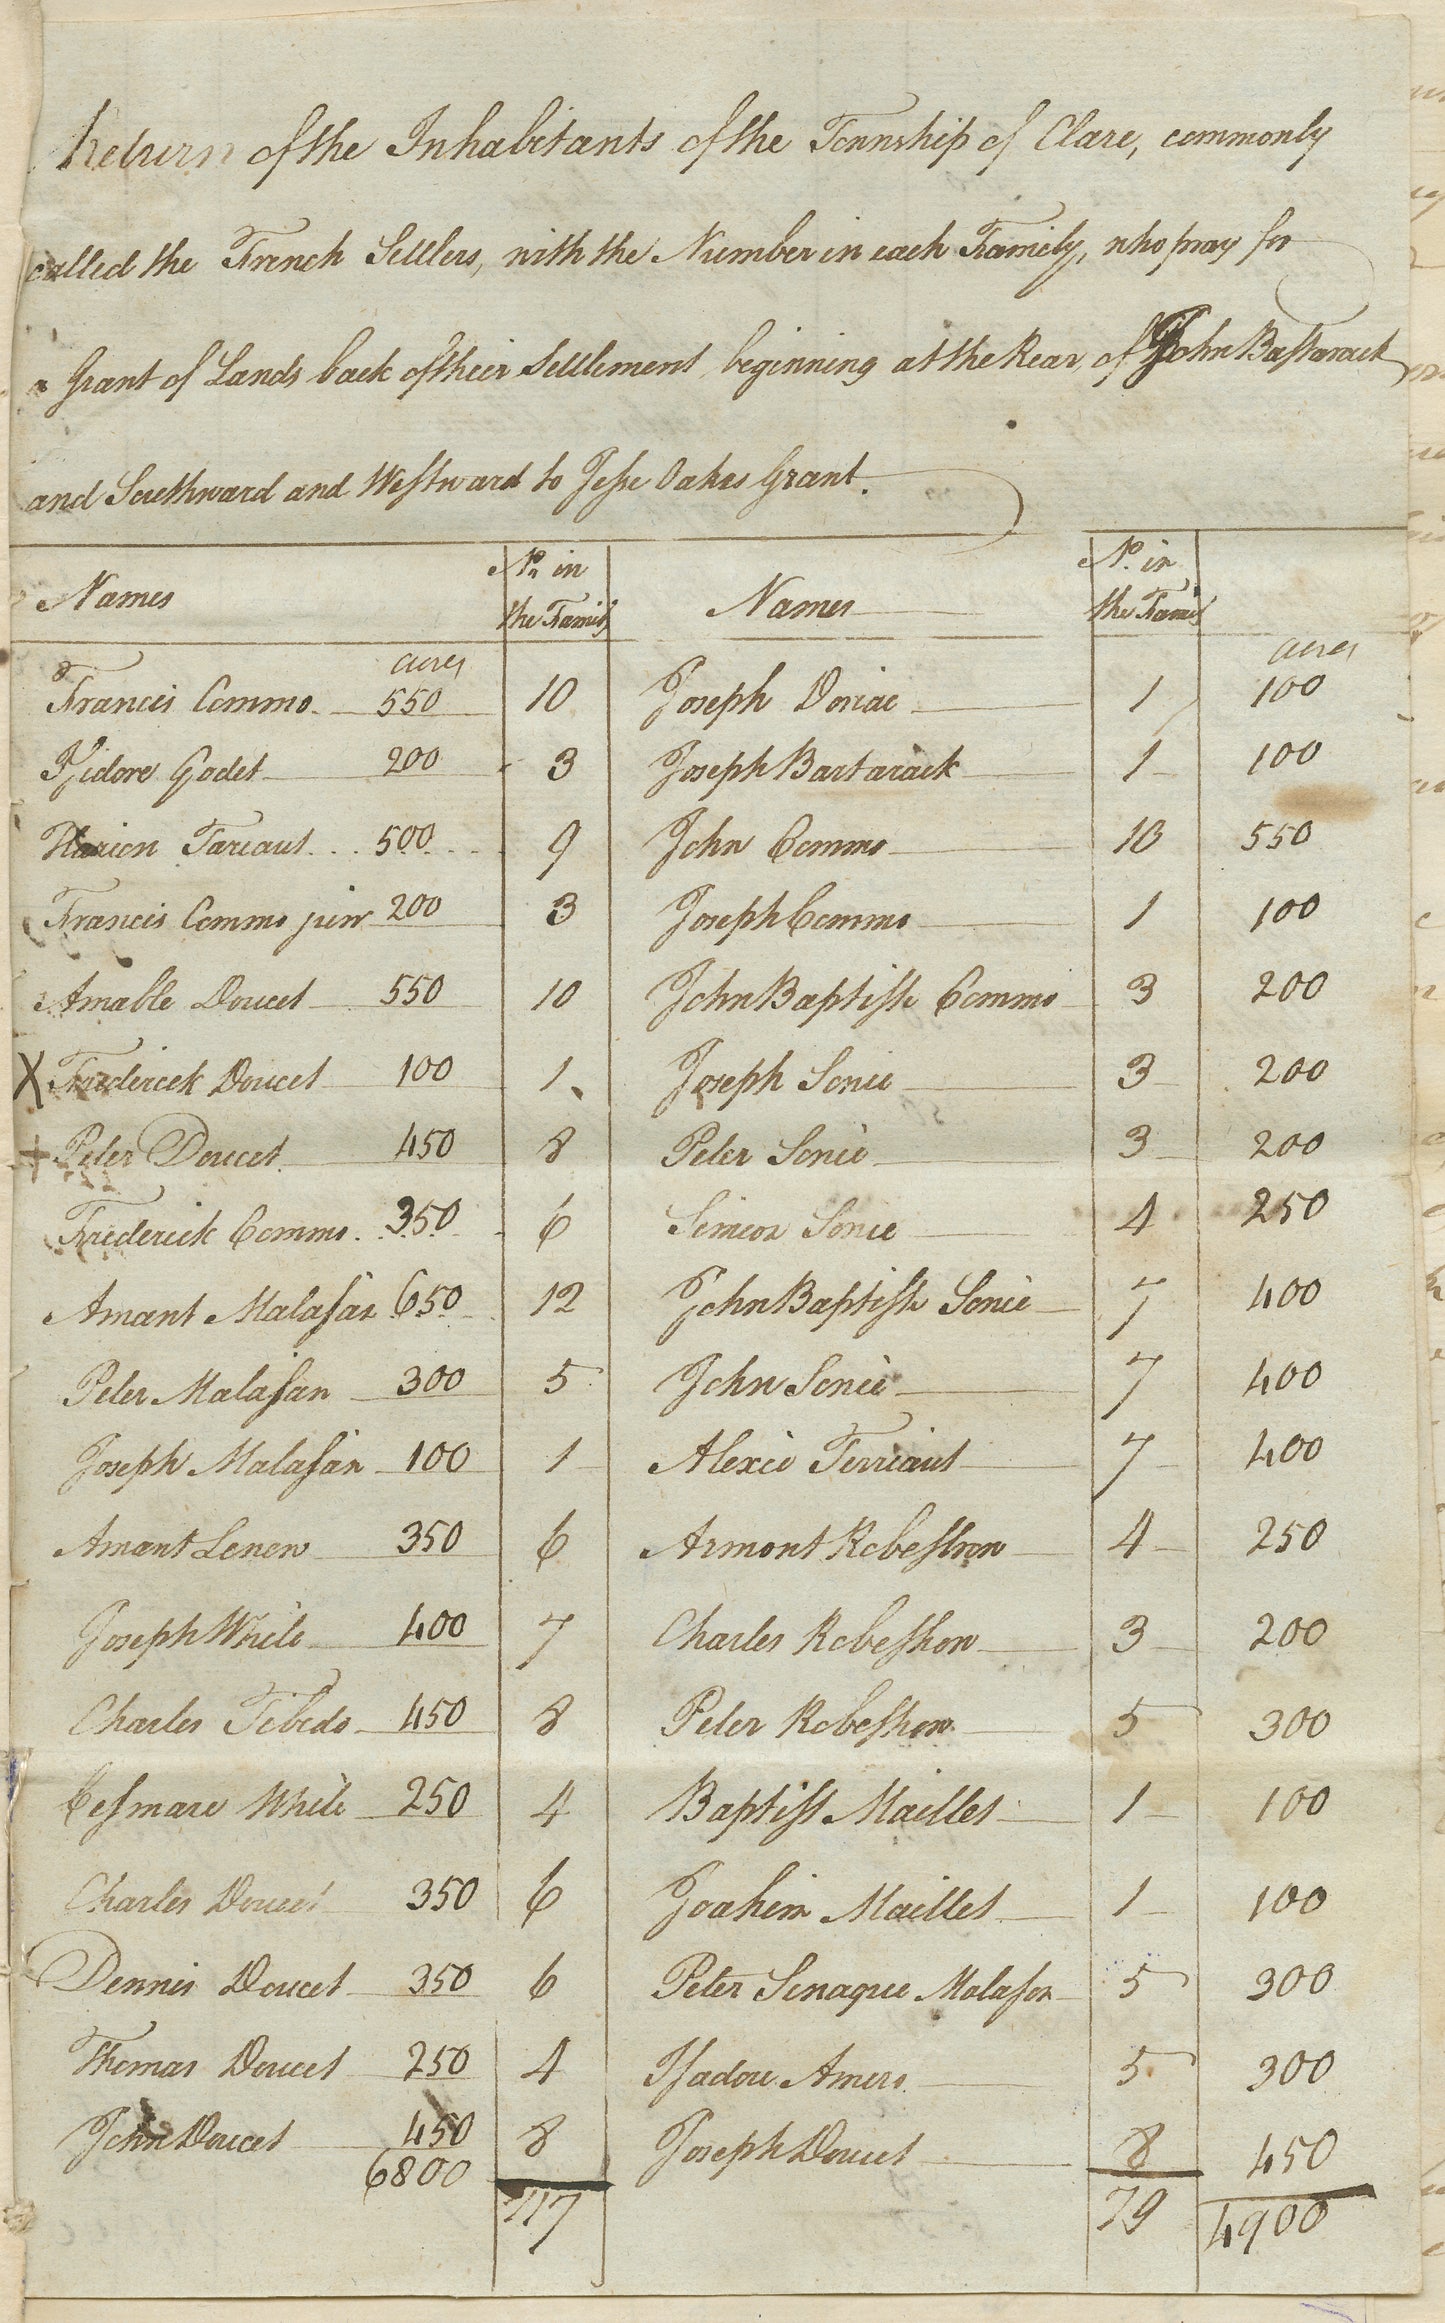 Return of the Inhabitants of the Township of Clare, commonly
called the French Settlers, with the Number in each Family, who pray for
a Grant of Lands back of their Settlement beginning at the Rear of John Bastarack
and Southward and Westward to Jesse Oakes Grant.
Names No. in the Family Names No. in the Family
acres acres
Francis Commo 550 10 Joseph Doriac 1 100
Isidore Godet 200 3 Joseph Bartarack 1 100
Hlarion Tariaut 500 9 John Commo 10 550
Francis Commo junr 200 3 Joseph Commo 1 100
Amable Doucet 550 10 John Baptiste Commo 3 200
X Frederick Doucet 100 1 Joseph Sonie 3 200
+ Peter Doucet 450 8 Peter Sonie 3 200
Frederick Commo 350 6 Simeon Sonie 4 250
Amant Malasan 650 12 John Baptiste Sonie 7 400
Peter Malasan 300 5 John Sonie 7 400
Joseph Malasan 100 1 Alexie Terriaut 7 400
Amant Lenew 350 6 Armont Robeshon 4 250
Joseph White 400 7 Charles Robeshon 3 200
Charles Tibedo 450 8 Peter Robeshon 5 300
Cesmare White 250 4 Baptist Maillet 1 100
Charles Doucet 350 6 Joahim Maillet 1 100
Dennis Doucet 350 6 Peter Senaque Malason 5 300
Thomas Doucet 250 4 Isadore Amero 5 300
John Doucet 450 8 Joseph Doucet 8 450
6800 117 79 4900